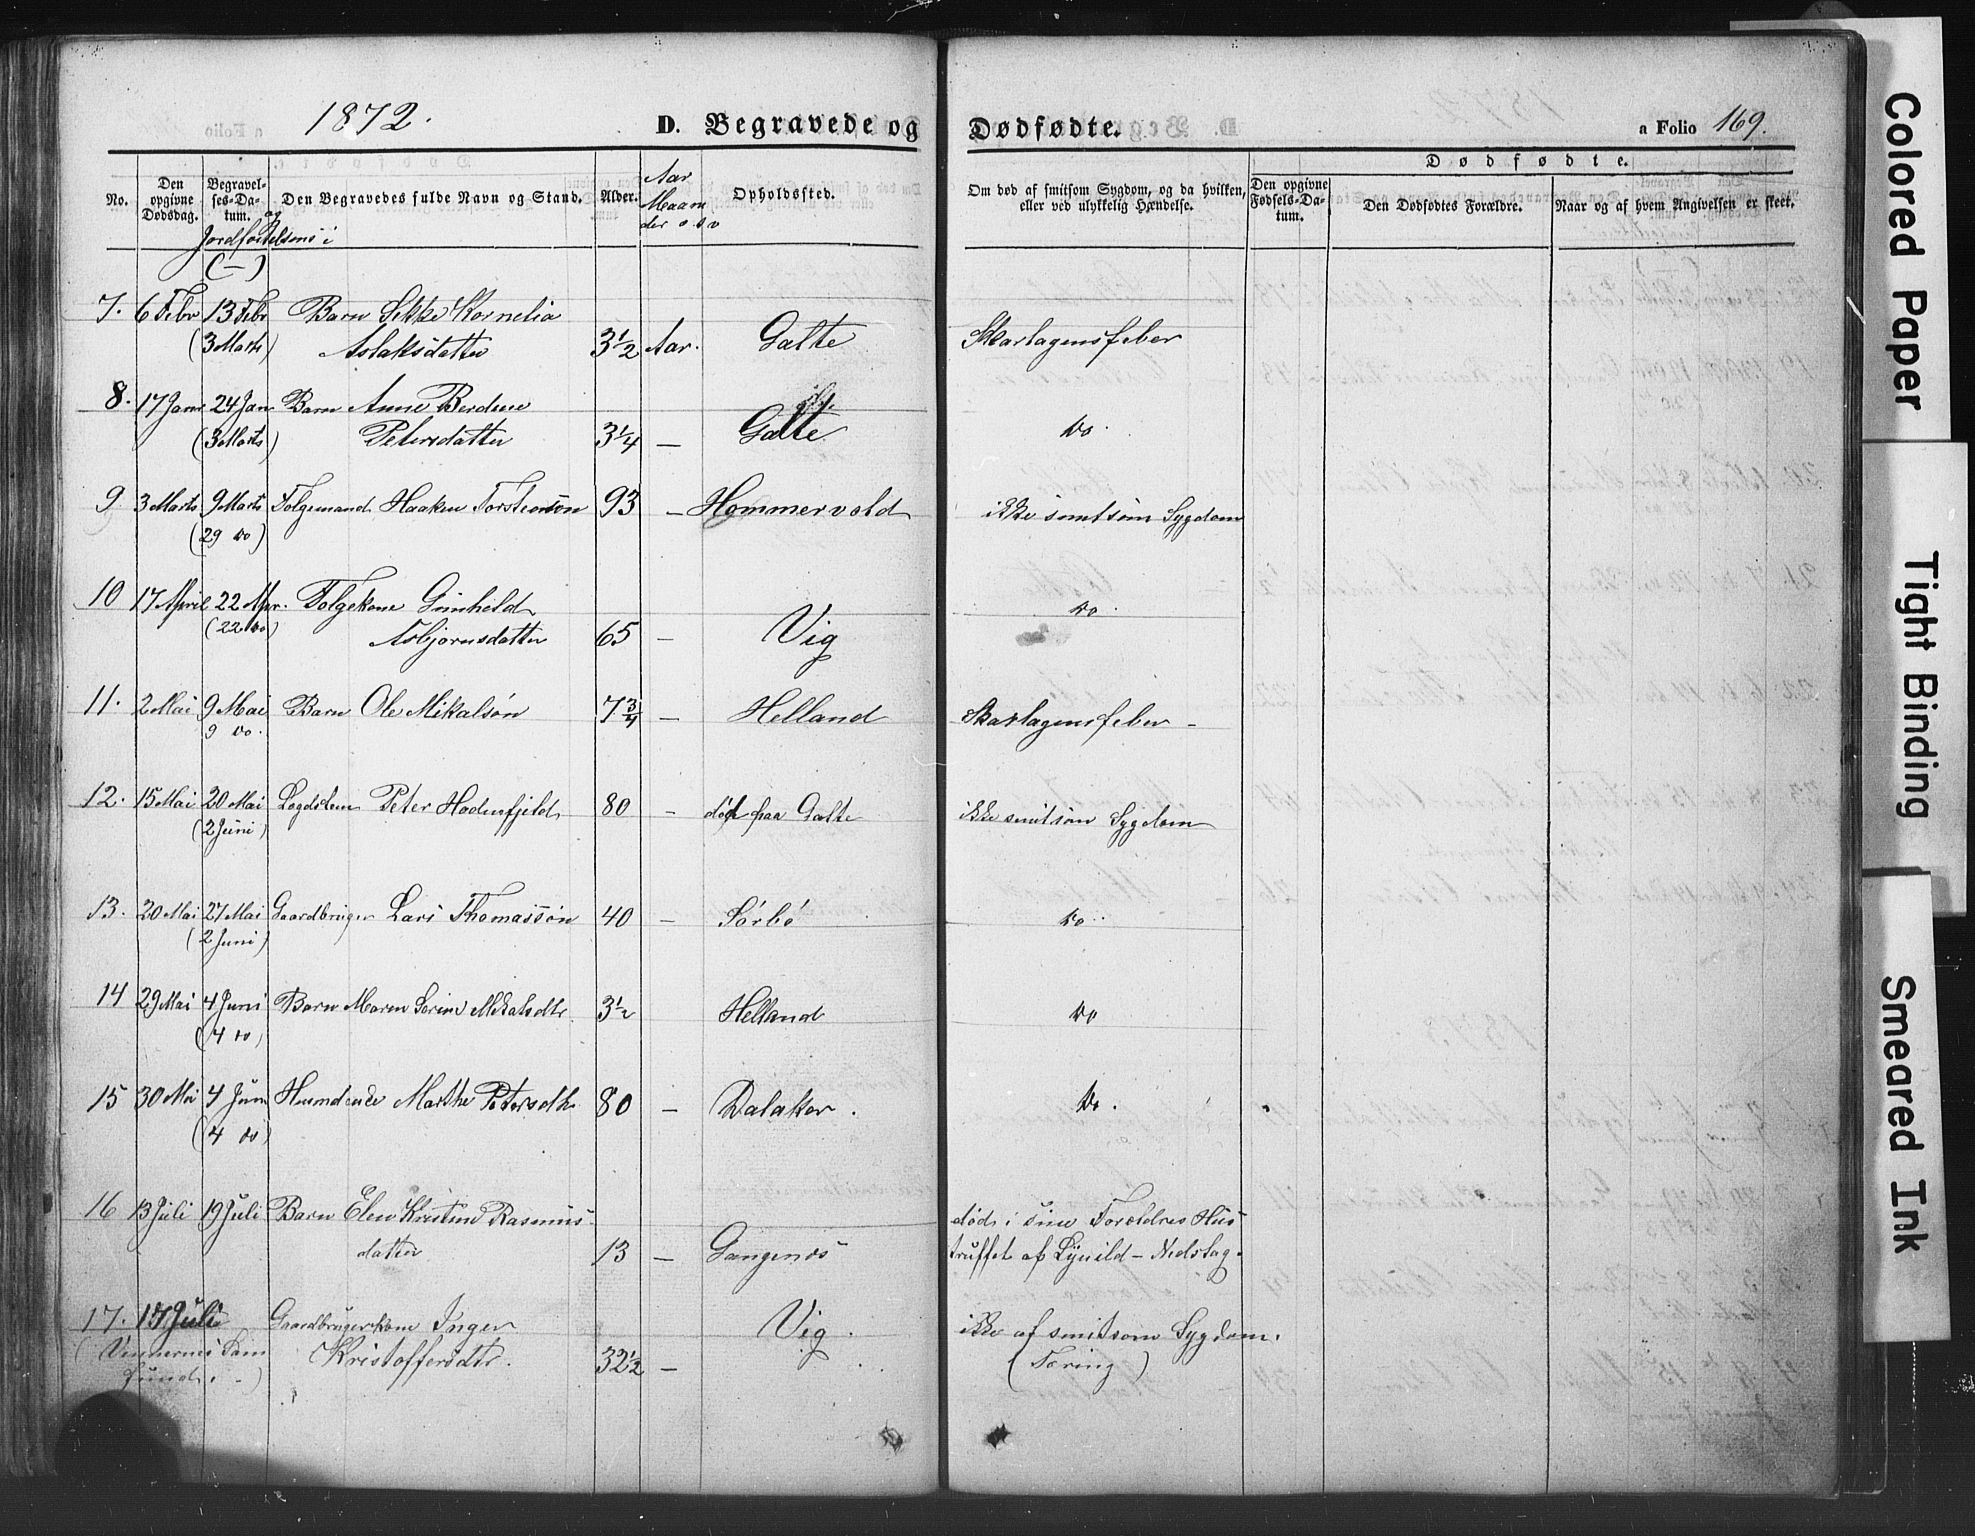 1872.
D. Begravede og Dødfødte.
a Folio 169.
No.
Den opgivne Dødsdag.
Begravelses-Datum.
og Jordfæstelsens i (—)
Den Begravedes fulde Navn og Stand.
Alder.
Aar Maaneder o.s.v
Opholdssted.
Om død af smitsom Sygdom, og da hvilken, eller ved ulykkelig Hændelse.
Dødfødte.
Den opgivne Fødsels-Datum.
Den Dødfødtes Forældre.
Naar og af hvem Angivelsen er skeet.
7. 6 Febr 13 Febr Barn Sikke Kornelia
(3 Marts) Aslaksdatter 3½ Aar. Galte Skarlagensfeber
8. 17 Janr 24 Jan Barn Anne Berdine
(3 Marts) Petersdatter 3¼ — Galte do.
9 3 Marts 9 Marts Folgemand Haaken Torstensøn 93 — Hommervold ikke smitsom Sygdom
(29 do)
10 17 April 22 Apr. Folgekone Gunhild do.
(22 do) Asbjørnsdatter 65 — Vig
11. 2 Mai 9 Mai Barn Ole Mikalsøn 7¾ — Helland Skarlagensfeber –
9 do.
12. 15 Mai 20 Mai Lægdslem Peter Hodnefjeld 80 — død paa Galte ikke smitsom Sygdom
(2 Juni)
13. 20 Mai 27 Mai Gaardbruger Lars Thomassøn 40 — Sørbø do..
(2 Juni)
14 29 Mai 4 Juni Barn Maren Serine Mikalsdtr. 3½ Helland do
(4 do)
15 30 Mai 4 Juni Marthe Petersdtr 80 — Dalaker. Do.
(4 do)
16 13 Juli 19 Juli Barn Elen Kristine Rasmus- død i sine Forældres Hus
datter 13 — Gangenæs truffet af Lynild – Nedslag.
17. 17 Juli Gaardbrugerkone Inger Vig. ikke af smitsom Sygdom.
Kristoffersdtr. 32½ — (Tæring)
Colored Paper
Tight Binding
Smeared Ink